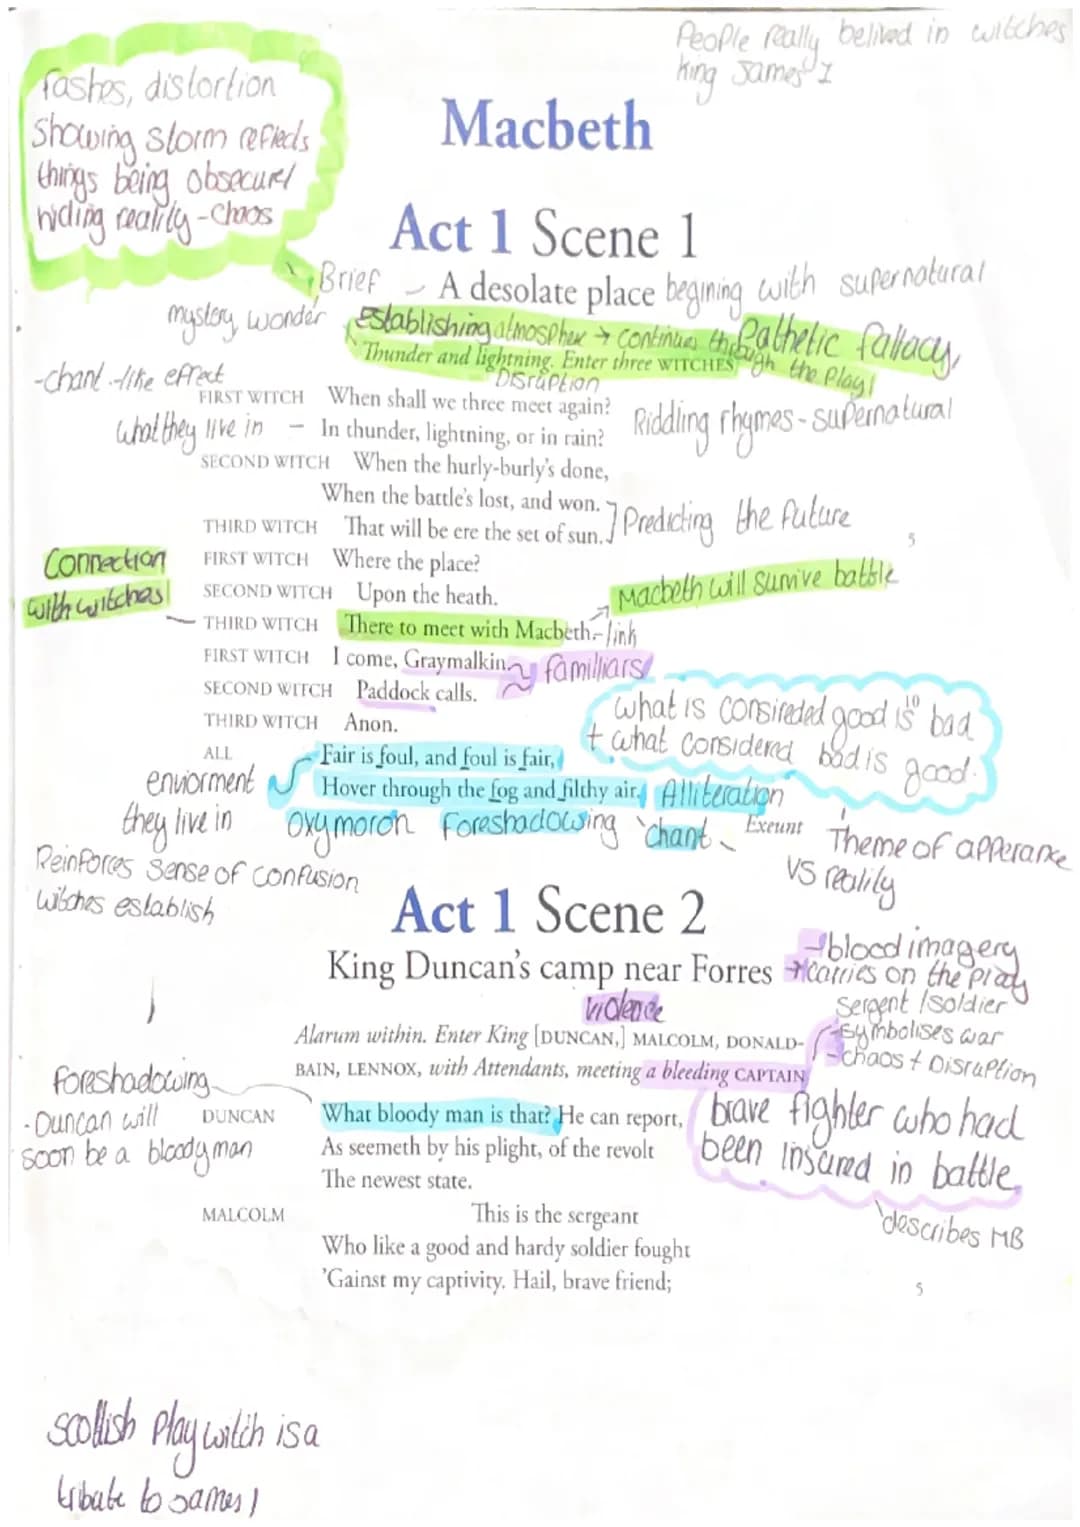 People really belived in witches
King James I
fashes, distortion
Showing storm reflects
things being obsecure/
hiding reality - chaos
Macbeth
Act 1 Scene 1
Brief - A desolate place begining with supernatural
mystery, wonder
Establishing atmospher → continues through the Play!
Pathetic fallacy,
Thunder and lightning. Enter three WITCHES
Disruption
-chant -like effect
FIRST WITCH When shall we three meet again?
what they live in - In thunder, lightning, or in rain?
Riddling rhymes - supernatural
SECOND WITCH When the hurly-burly's done,
When the battle's lost, and won.
THIRD WITCH That will be ere the set of sun.
Predicting the future
5
FIRST WITCH Where the place?
Connection
with witches
SECOND WITCH Upon the heath.
Macbeth will survive battle
THIRD WITCH There to meet with Macbeth. - link
FIRST WITCH I come, Graymalkin.
familliars
SECOND WITCH Paddock calls.
THIRD WITCH Anon.
10
what is consireded good is bad
+ what considered bad is good.
ALL Fair is foul, and foul is fair,
Hover through the fog and filthy air. Alliteration
enviorment
they live in
Oxymoron Foreshadowing 'chant
Exeunt
Theme of apperance
vs reality
Reinforces sense of confusion
witches establish
Act 1 Scene 2
King Duncan's camp near Forres
-blood imagery
→carries on the play
violence
Sergent / soldier
-symbolises war
-chaos + Disruption
Alarum within. Enter King [DUNCAN,] MALCOLM, DONALD-
BAIN, LENNOX, with Attendants, meeting a bleeding CAPTAIN
foreshadowing
- Duncan will
soon be a bloody man
DUNCAN What bloody man is that? He can report,
As seemeth by his plight, of the revolt
The newest state.
brave fighter who had
been insured in battle.
'describes MB
MALCOLM This is the sergeant
Who like a good and hardy soldier fought
'Gainst my captivity. Hail, brave friend;
5
scottish play witch is a
tribute to James 1